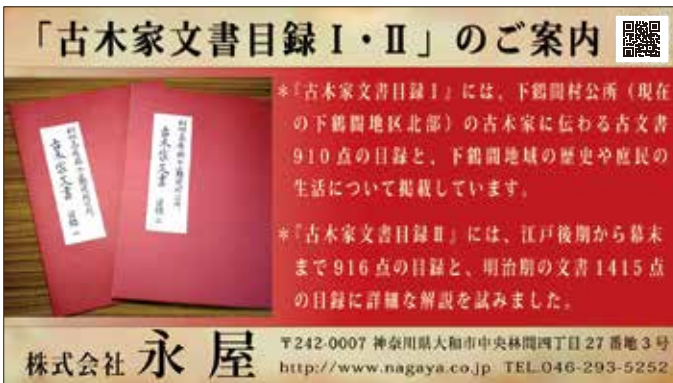 「古木家文書目録Ⅰ・Ⅱ」のご案内
*『古木家文書目録Ⅰ』には、下鶴間村公所（現在
の下鶴間地区北部）の古木家に伝わる古文書
910点の目録と、下鶴間地域の歴史や庶民の
生活について掲載しています。
*『古木家文書目録Ⅱ』には、江戸後期から幕末
まで916点の目録と、明治期の文書1415点
の目録に詳細な解説を試みました。
古木家文書
古木家文書
株式会社 永屋
〒242-0007 神奈川県大和市中央林間四丁目27番地3号
http://www.nagaya.co.jp TEL.046-293-5252